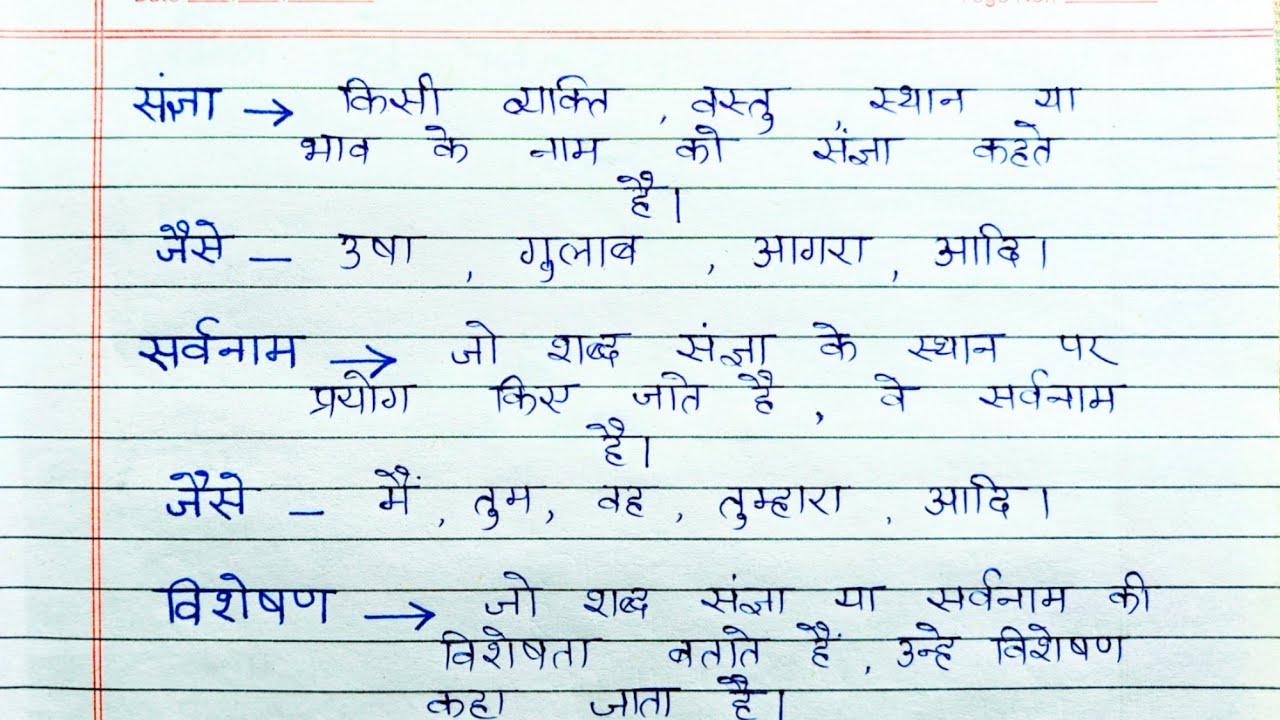 संज्ञा → किसी व्यक्ति, वस्तु, स्थान या
भाव के नाम को संज्ञा कहते
है।
जैसे – उषा, गुलाब, आगरा, आदि।
सर्वनाम → जो शब्द संज्ञा के स्थान पर
प्रयोग किए जाते है, वे सर्वनाम
है।
जैसे – मैं, तुम, वह, तुम्हारा, आदि।
विशेषण → जो शब्द संज्ञा या सर्वनाम की
विशेषता बताते हैं, उन्हे विशेषण
कहा जाता है।